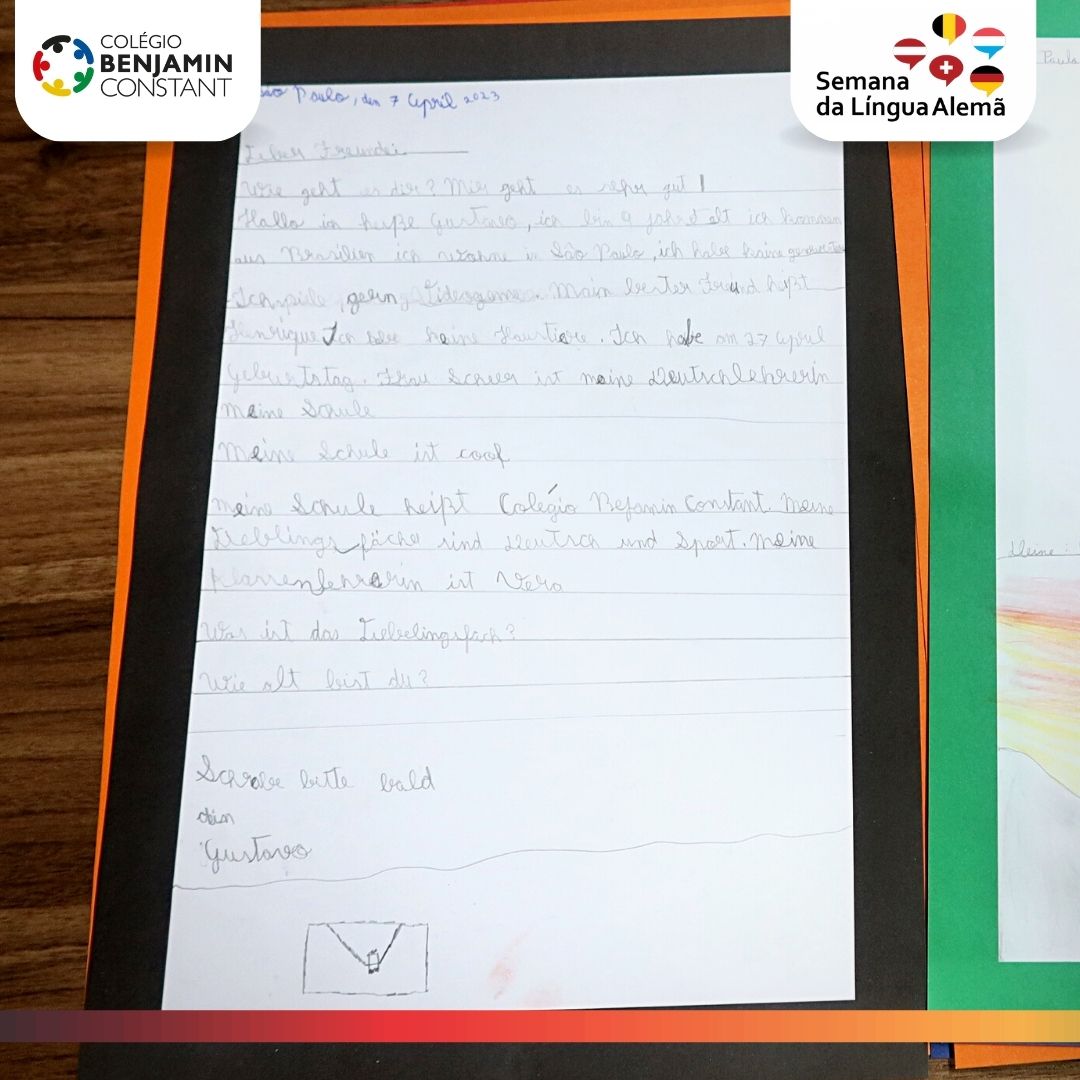 COLÉGIO
BENJAMIN
CONSTANT
Semana
da Língua Alemã
São Paulo, den 7 April 2023
Lieber Freunde
Wie geht es dir? Mir geht es sehr gut!
Hallo ich heiße Gustavo, ich bin 9 jahre alt ich kommen
aus Brasilien ich wohne in São Paulo, ich habe keine
Ich gern Videogame. Mein bester Freund heißt
Henrique Ich keine Haustiere. Ich habe am 27 April
Geburtstag. Frau ist meine Deutschlehrerin
meine Schule
Meine Schule ist cool
meine Schule heißt Colégio Befamin Constant. Meine
Lieblingsfächer sind Deutsch und Sport. Meine
Klassenlehrerin ist Vera
Was ist das Liebelingsfach?
Wie alt bist du?
Schrebe bitte bald
dein
Gustavo
Paulo
Meine